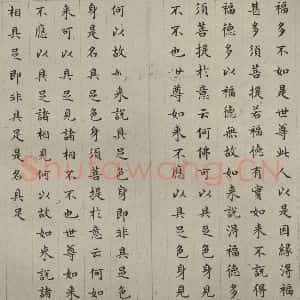 福多不世尊此人以是因緣得福
甚多須菩提若福德有實如來不說得
福德多以福德無故如來說得福德多
須菩提於意云何佛可以具足色身見
不不也世尊如來不應以具足色身見
何以故如來說具足色身即非具足色
身是名具足色身須菩提於意云何如
來可以具足諸相見不不也世尊如來
不應以具足諸相見何以故如來說諸
相具足即非具足是名具足
Shufawang.CN